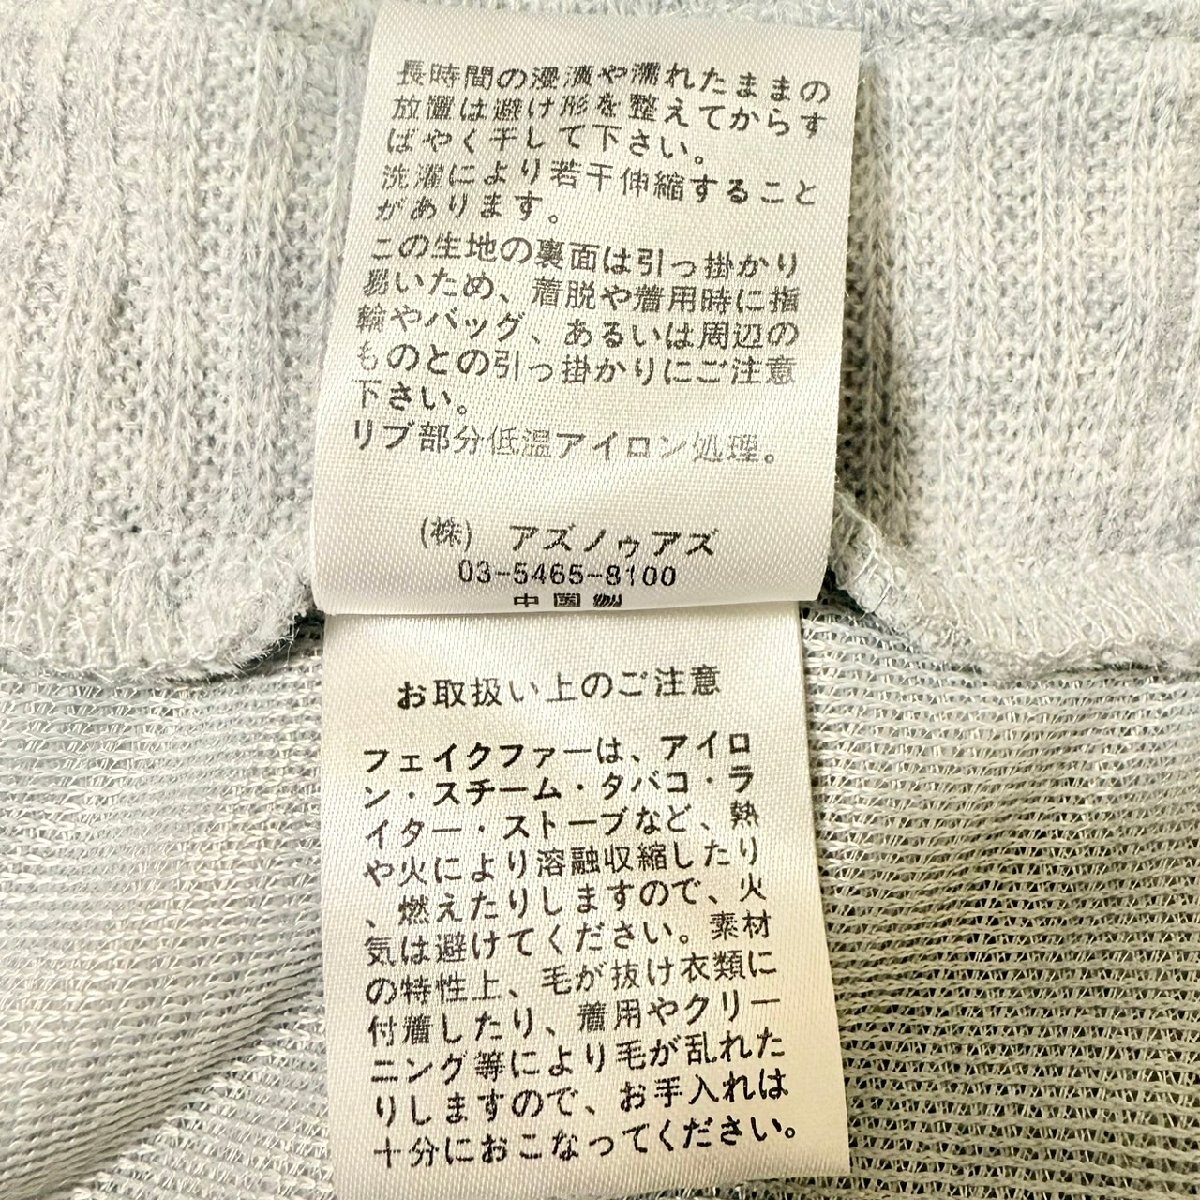 長時間の浸漬や濡れたままの
放置は避け形を整えてからす
ばやく干して下さい。
洗濯により若干伸縮すること
があります。
この生地の裏面は引っ掛かり
易いため、着脱や着用時に指
輪やバッグ、あるいは周辺の
ものとの引っ掛かりにご注意
下さい。
リブ部分低温アイロン処理。
(株) アズノゥアズ
03-5465-8100
中国製
お取扱い上のご注意
フェイクファーは、アイロ
ン・スチーム・タバコ・ラ
イター・ストーブなど、熱
や火により溶融収縮したり
、燃えたりしますので、火
気は避けてください。素材
の特性上、毛が抜け衣類に
付着したり、着用やクリー
ニング等により毛が乱れた
りしますので、お手入れは
十分におこなってください。